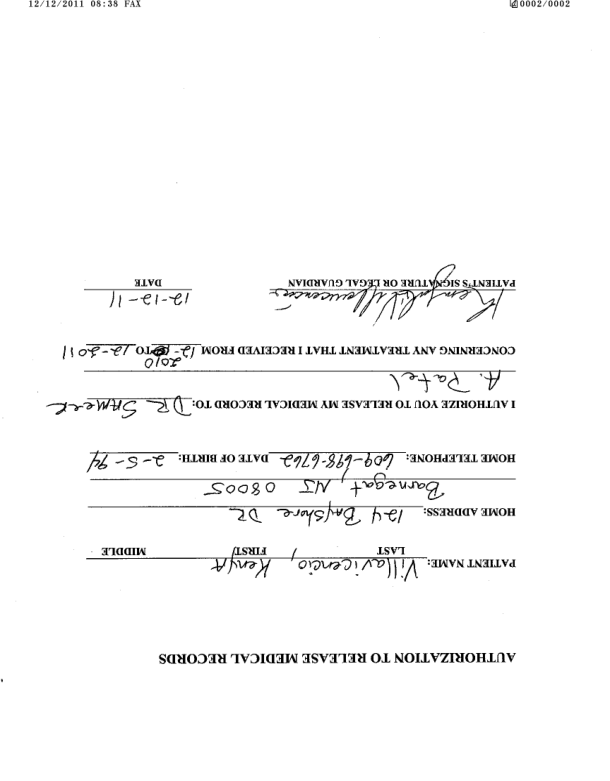 12/12/2011 08:38 FAX 0002/0002
AUTHORIZATION TO RELEASE MEDICAL RECORDS
PATIENT NAME: Villavicencio, KenyA
LAST FIRST MIDDLE
HOME ADDRESS: 124 BayShore DR
Barnegat, NJ 08005
HOME TELEPHONE: 609-698-6762 DATE OF BIRTH: 2-5-94
I AUTHORIZE YOU TO RELEASE MY MEDICAL RECORD TO: DR SAMEER
A. Patel
2010
CONCERNING ANY TREATMENT THAT I RECEIVED FROM 12- TO 12-2011
Kenya Villavicencio 12-12-11
PATIENT'S SIGNATURE OR LEGAL GUARDIAN DATE